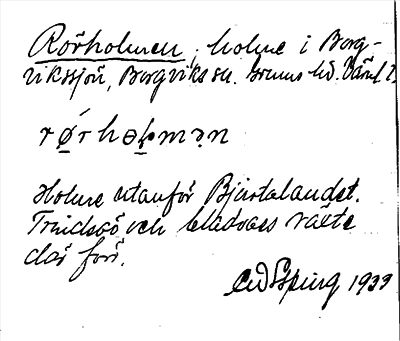 Rörholmen, holme i Borg-
vikssjön, Borgviks sn. Grums hd. Värml.
rǿ̱rhɵḷmə̣n
Holme utanför Bjurtalandet.
Trindsäv och bladvass växte
där förr.
1933